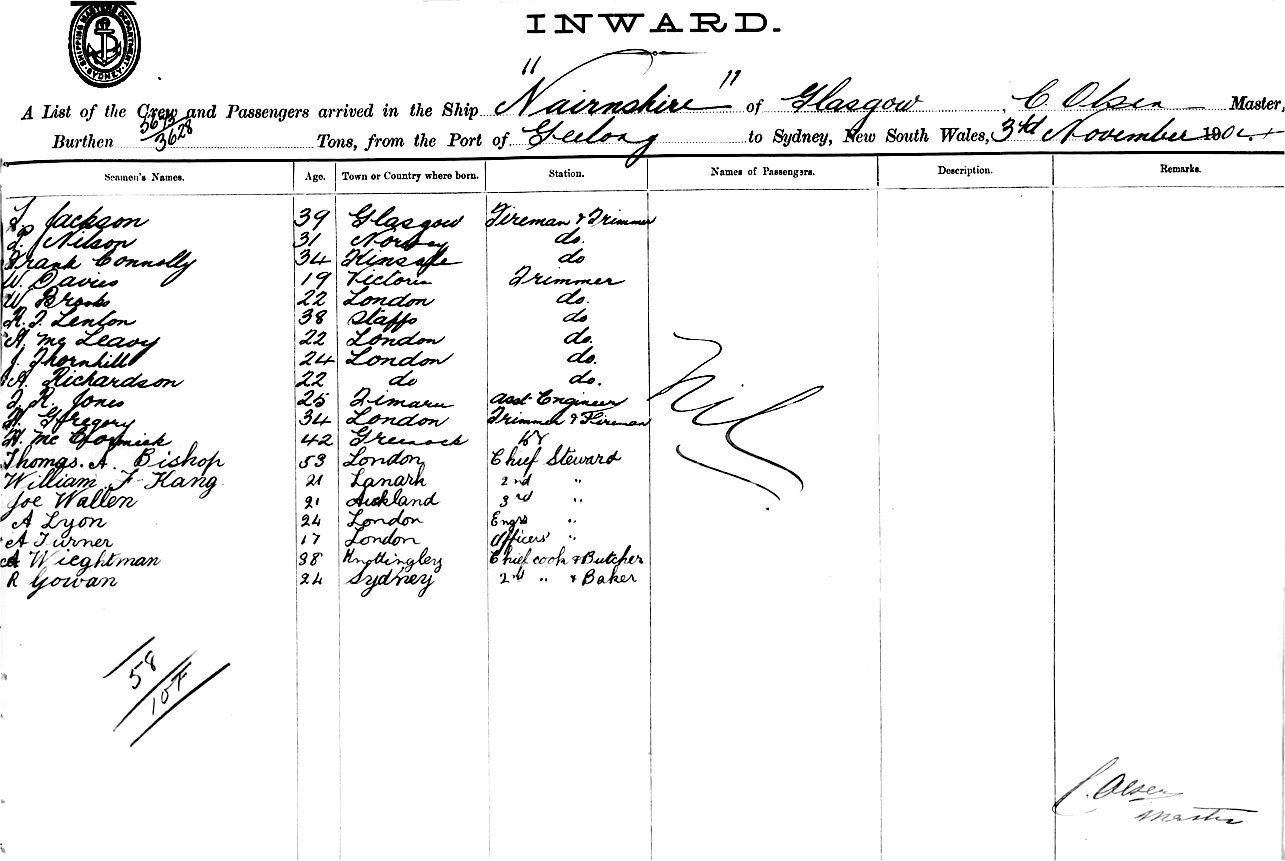 SHIPPING MASTERS DEPARTMENT SYDNEY
INWARD.
A List of the Crew and Passengers arrived in the Ship "Nairnshire" of Glasgow, C Olsen Master,
Burthen 3628 Tons, from the Port of Geelong to Sydney, New South Wales, 3rd November 1904
Seamen's Names. Age. Town or Country where born. Station. Names of Passengers. Description. Remarks.
Jackson 39 Glasgow Fireman & Trimmer
Nilson 31 Norway do.
Frank Connolly 34 Kinsale do
W. Davies 19 Victoria Trimmer
W. Brooks 22 London do.
Lenton 38 Staffs do
A. Mc Leavy 22 London do.
J. Thornhill 24 London do.
A. Richardson 22 do do.
R. Jones 25 Timaru asst Engineer
H. Gregory 34 London Trimmer & Fireman
H. Mc Cormick 42 Greenock
Thomas. A. Bishop 53 London Chief Steward
William F Kang 21 Lanark 2nd "
Joe Wallen 21 Auckland 3rd "
A Lyon 24 London Engrs "
A Turner 17 London Officers' "
A Wieghtman 38 Knottingley Chief cook & Butcher
R Gowan 24 Sydney 2nd " & Baker
Nil
58
10F
C. Olsen
Master